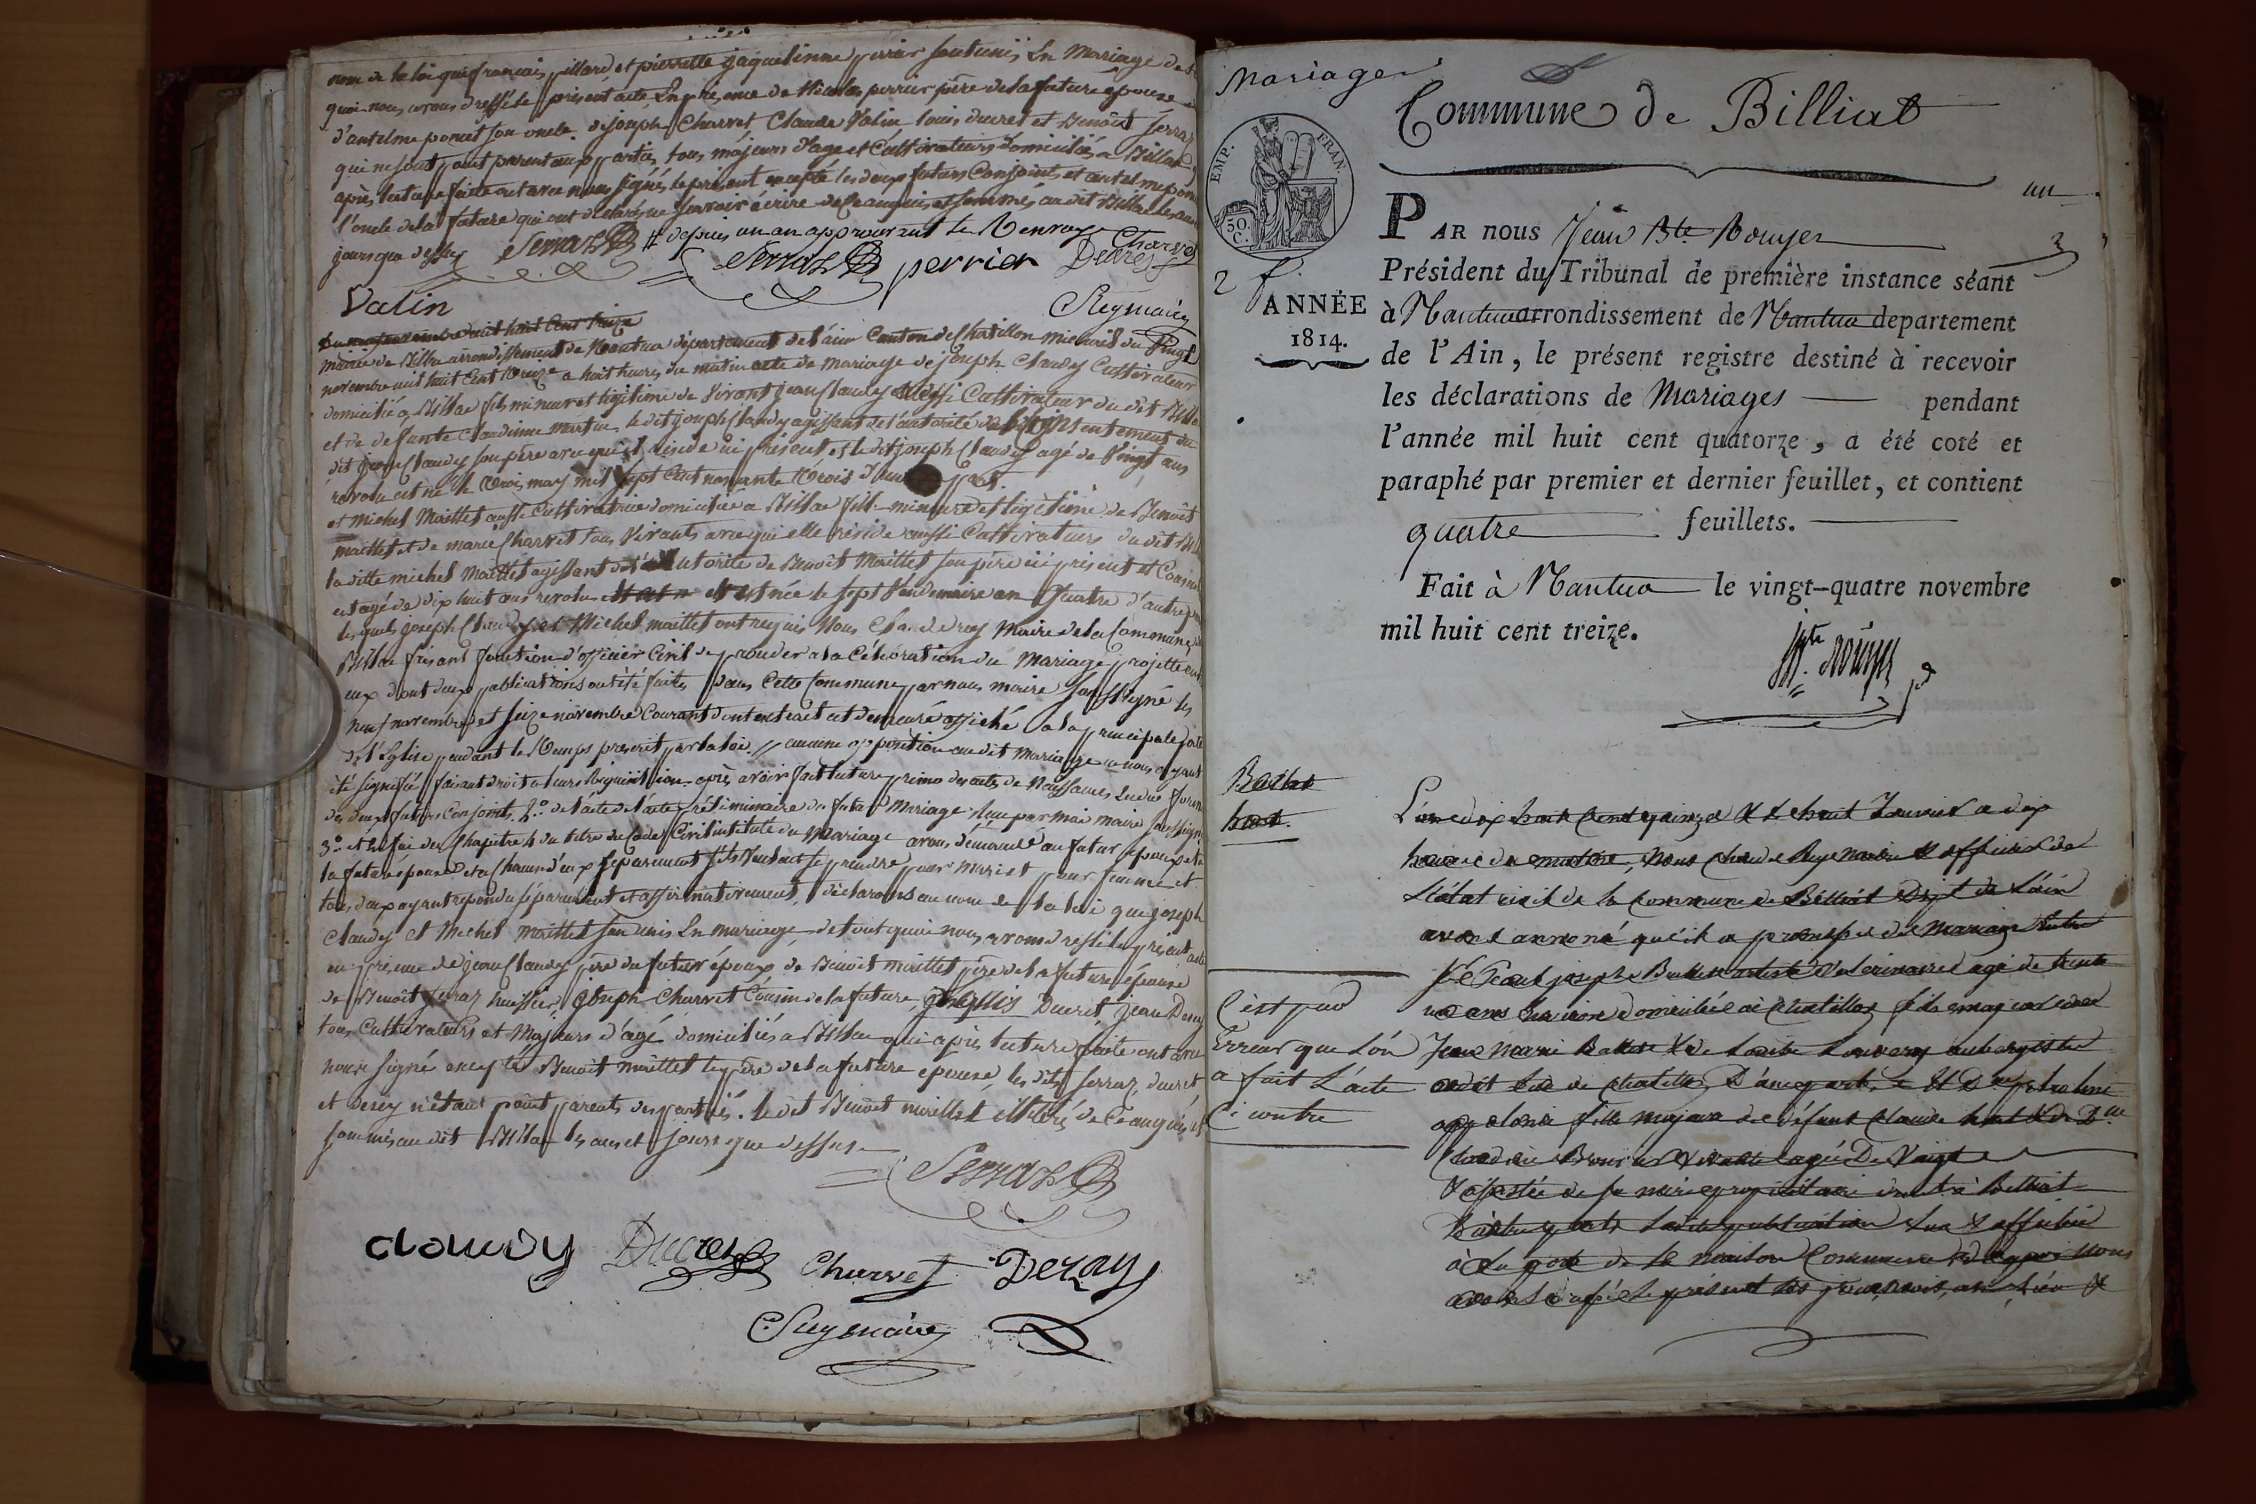 nom de la loi que françois pillard et pierrette jaquelinne perrier sont unis En Mariage de
quoi nous avons dressé le présent acte En présence de Nicolas perrier père de la future épouse
d'antelme poncet son oncle de joseph Charvet Claude Valin louis ducret et Benoit ferraz
qui ne sont point parents aux parties, tous májeurs d'age et Cultivateurs domiciliés a Billiat
après lecture faite ont avec nous signés le présent excepté les deux futurs Conjoints et antelme poncet
l'oncle de la future qui ont declarés ne savoir écrire de ce enquis et sommés au dit Billiat les an et
jours que dessus # depuis un an approuvant le Renvoy Charvet
perrier Ducret
Valin
Reymaire
mairie de Billia arrondissement de Nantua département de l'ain Canton de Chatillon michaille du Vingt
novembre mil huit Cent treize a huit heures du matin acte de mariage de joseph Claudy Cultivateur
domicilié a Billiae fils mineur et légitime de Vivant jean Claudy aussi Cultivateur du dit Billia
et de defunte Claudinne martin, le dit joseph Claudy agissant de l'autorité de Consentement du
dit jean Claudy son père avec qui il reside ici présent et le dit joseph Claudy agé de Vingt ans
révolu est né le trois may mil sept Cent nonante trois d'une part.
et Michel Maillet aussi Cultivatrice domiciliée a Billiae fille mineure et légitime de Benoit
maillet et de marie Charvet tous Vivants avec qui elle réside aussi Cultivateurs du dit Bill
la ditte michel Maillet agissant de l'autorité de Benoit Maillet son père ici présent et Consent
est agé de dix huit ans revolu et est née le sept Vendemiaire an Quatre d'autre part
lesquels joseph Claudy et Michel maillet ont requis Nous Claude rey Maire de la Commune de
Billiae faisant fonction d'officier Civil de proceder a la Célébration du Mariage projetté entre
eux dont deux publications ont été faites dans Cette Commune par nous maire soussigné les
neuf novembre et seize novembre Courant dont extrait est demeuré affiché a la principale porte
de l'Eglise pendant le temps prescrit par la loi, aucune opposition au dit Mariage ne nous ayant
été signifié faisant droit a leurs Réquisition après avoir fait lecture primo des actes de Naissances
des deux futurs Conjoints 2.º de l'acte préliminaire du futur Mariage lue par moi maire soussigné
3.º et enfin du Chapitre 6 du titre du Code Civil intitulé du Mariage avons démandé au futur époux et a
la future épouse et a Chacun d'eux séparement s'ils Veulent se prendre pour mari et pour femme et
tous deux ayant repondu séparement et affirmativement, déclarons au nom de la loi que joseph
Claudy et Michel maillet sont unis En mariage de tout quoi nous avons dressé le présent acte
en présence de jean Claudy père du futur époux de Benoit maillet père de la future épouse
de Benoit ferraz huissier, joseph Charvet Cousin de la future, Ducret, jean Derey
tous Cultivateurs et Majeurs d'agé domiciliés a Billiae qui après lecture faite ont avec
nous signé excepté Benoit maillet le père de la future épouse, les dits ferraz, ducret
et derey n'étant point parents des parties. le dit Benoit maillet illitéré de Ce enquis et
sommé au dit Billiae les ans et jours que dessus
Claudy Ducret Charvet Derey
Reymaire
Mariages
Commune de Billiat
EMP. FRAN.
50 C.
un
PAR nous Jean Bte Rouyer
Président du Tribunal de première instance séant
ANNÉE
1814.
à Nantua arrondissement de Nantua departement
de l'Ain, le présent registre destiné à recevoir
les déclarations de Mariages pendant
l'année mil huit cent quatorze, a été coté et
paraphé par premier et dernier feuillet, et contient
quatre feuillets.
Fait à Nantua le vingt-quatre novembre
mil huit cent treize.
Jn Bte Rouyer
L'an dix huit Cent quinze & le huit Janvier a dix
heures du matin, Nous Claude Rey Maire & officier de
L'état civil de la Commune de Billiat Dépt de L'ain
avons annoncé qu'il a promesse de Mariage Entre
agé de trente
un ans domicilié a Chatillon fils majeur de
Jean Marie Ballet & de Louise aubergiste
audit lieu de Chatillon, D'une part, &
fille majeure de défunt Claude & de De
agée De Vingt
& assistée de sa mere propriétaire a Billiat
D'autre part, Ladite publication lue & affichée
à La porte de la maison Commune & de quoi nous
avons le présent les jour, mois, an, Lieu &
C'est par
Erreur que L'on
a fait L'acte
Ci contre